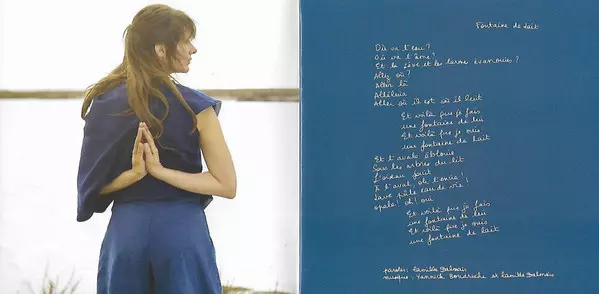 Fontaine de lait
Où va l'eau?
Où va l'âme?
Et la sève et les larmes évanouies?
Allez où?
Aller là
Alléluia
Aller où il est où il luit
Et voilà que je fais
une fontaine de lui
Et voilà que je suis
une fontaine de lait
Et l'avale éblouie
Sous les arbres du lit
L'oiseau
À l'aval, oh
eau de vie!
opale! oh! oui
Et voilà que je fais
une fontaine de lui
Et voilà que je suis
une fontaine de lait
paroles: Camille Dalmais
musique: Yannick et Camille Dalmais